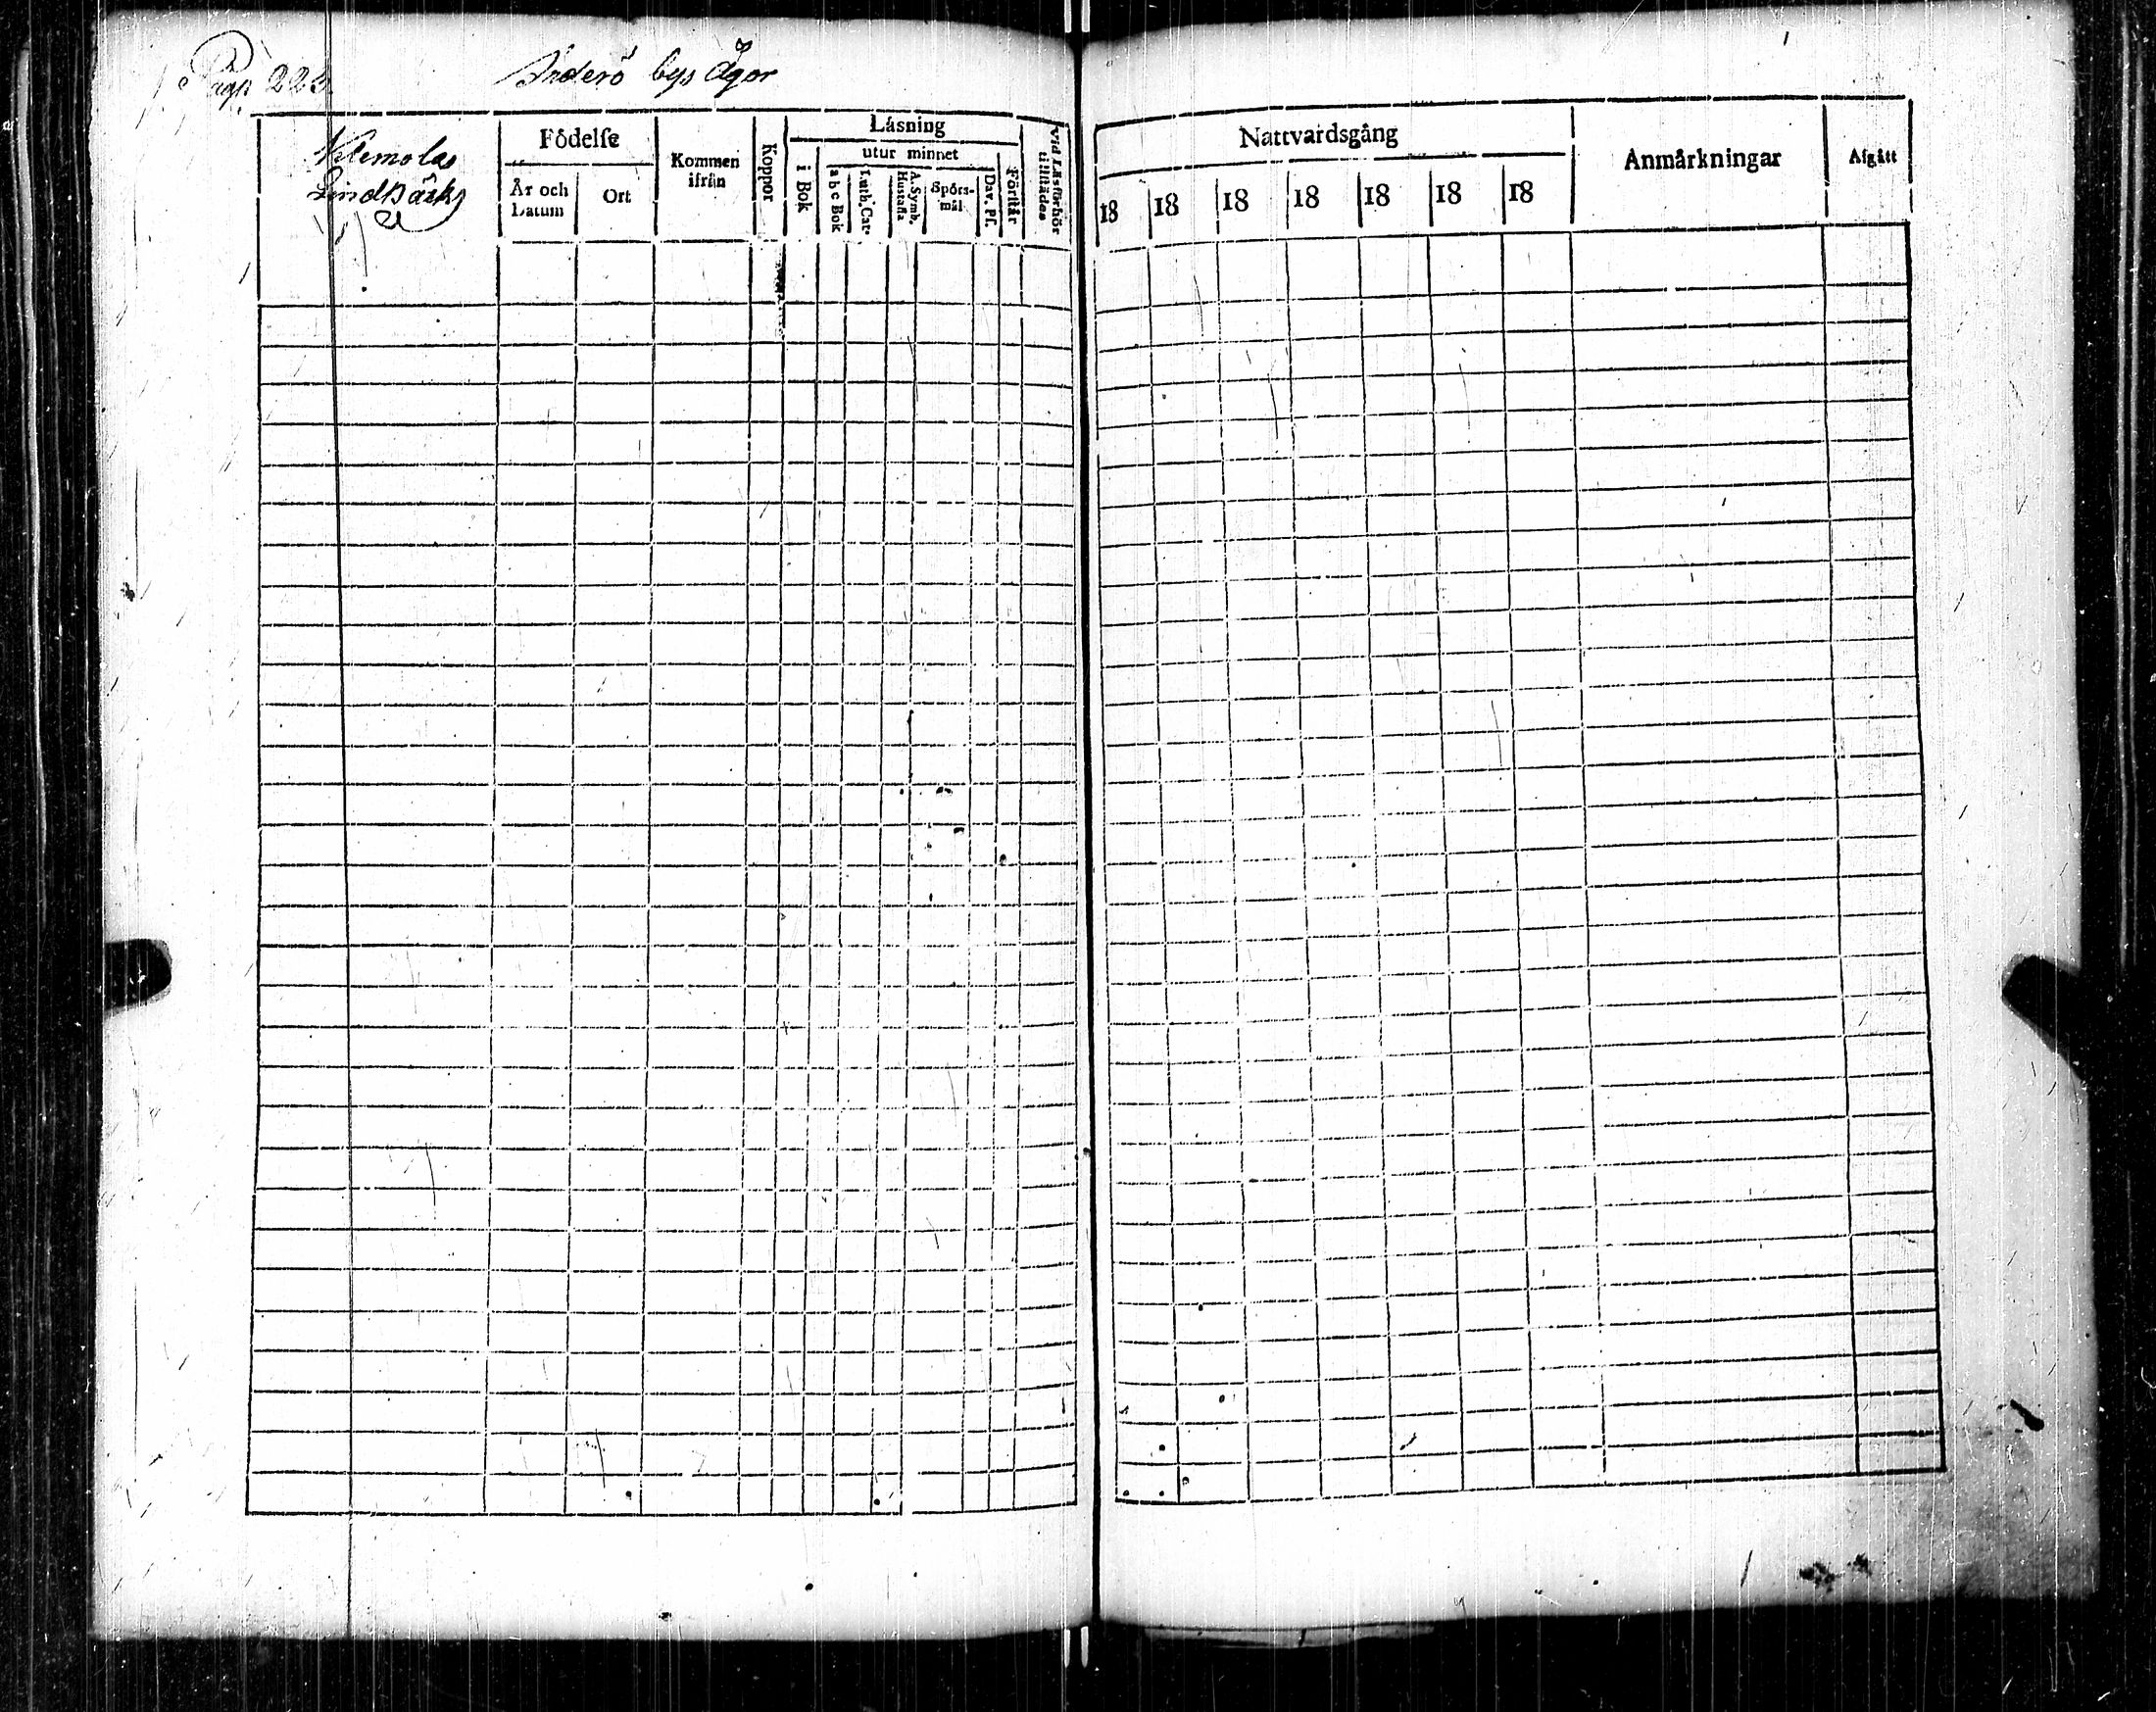 Pag. 223.
Ånderö bys ägor
Lindbäck
Födelſe
År och Datum
Ort
Kommen ifrån
Koppor
Läsning
i Bok
utur minnet
a b c Bok
Luth. Cat.
A. Symb. Hustafla
Spörsmål
Dav. Pſ.
Förſtår
vid Läsförhör tillſtädes
Nattvardsgång
18 18 18 18 18 18 18
Anmärkningar
Afgått